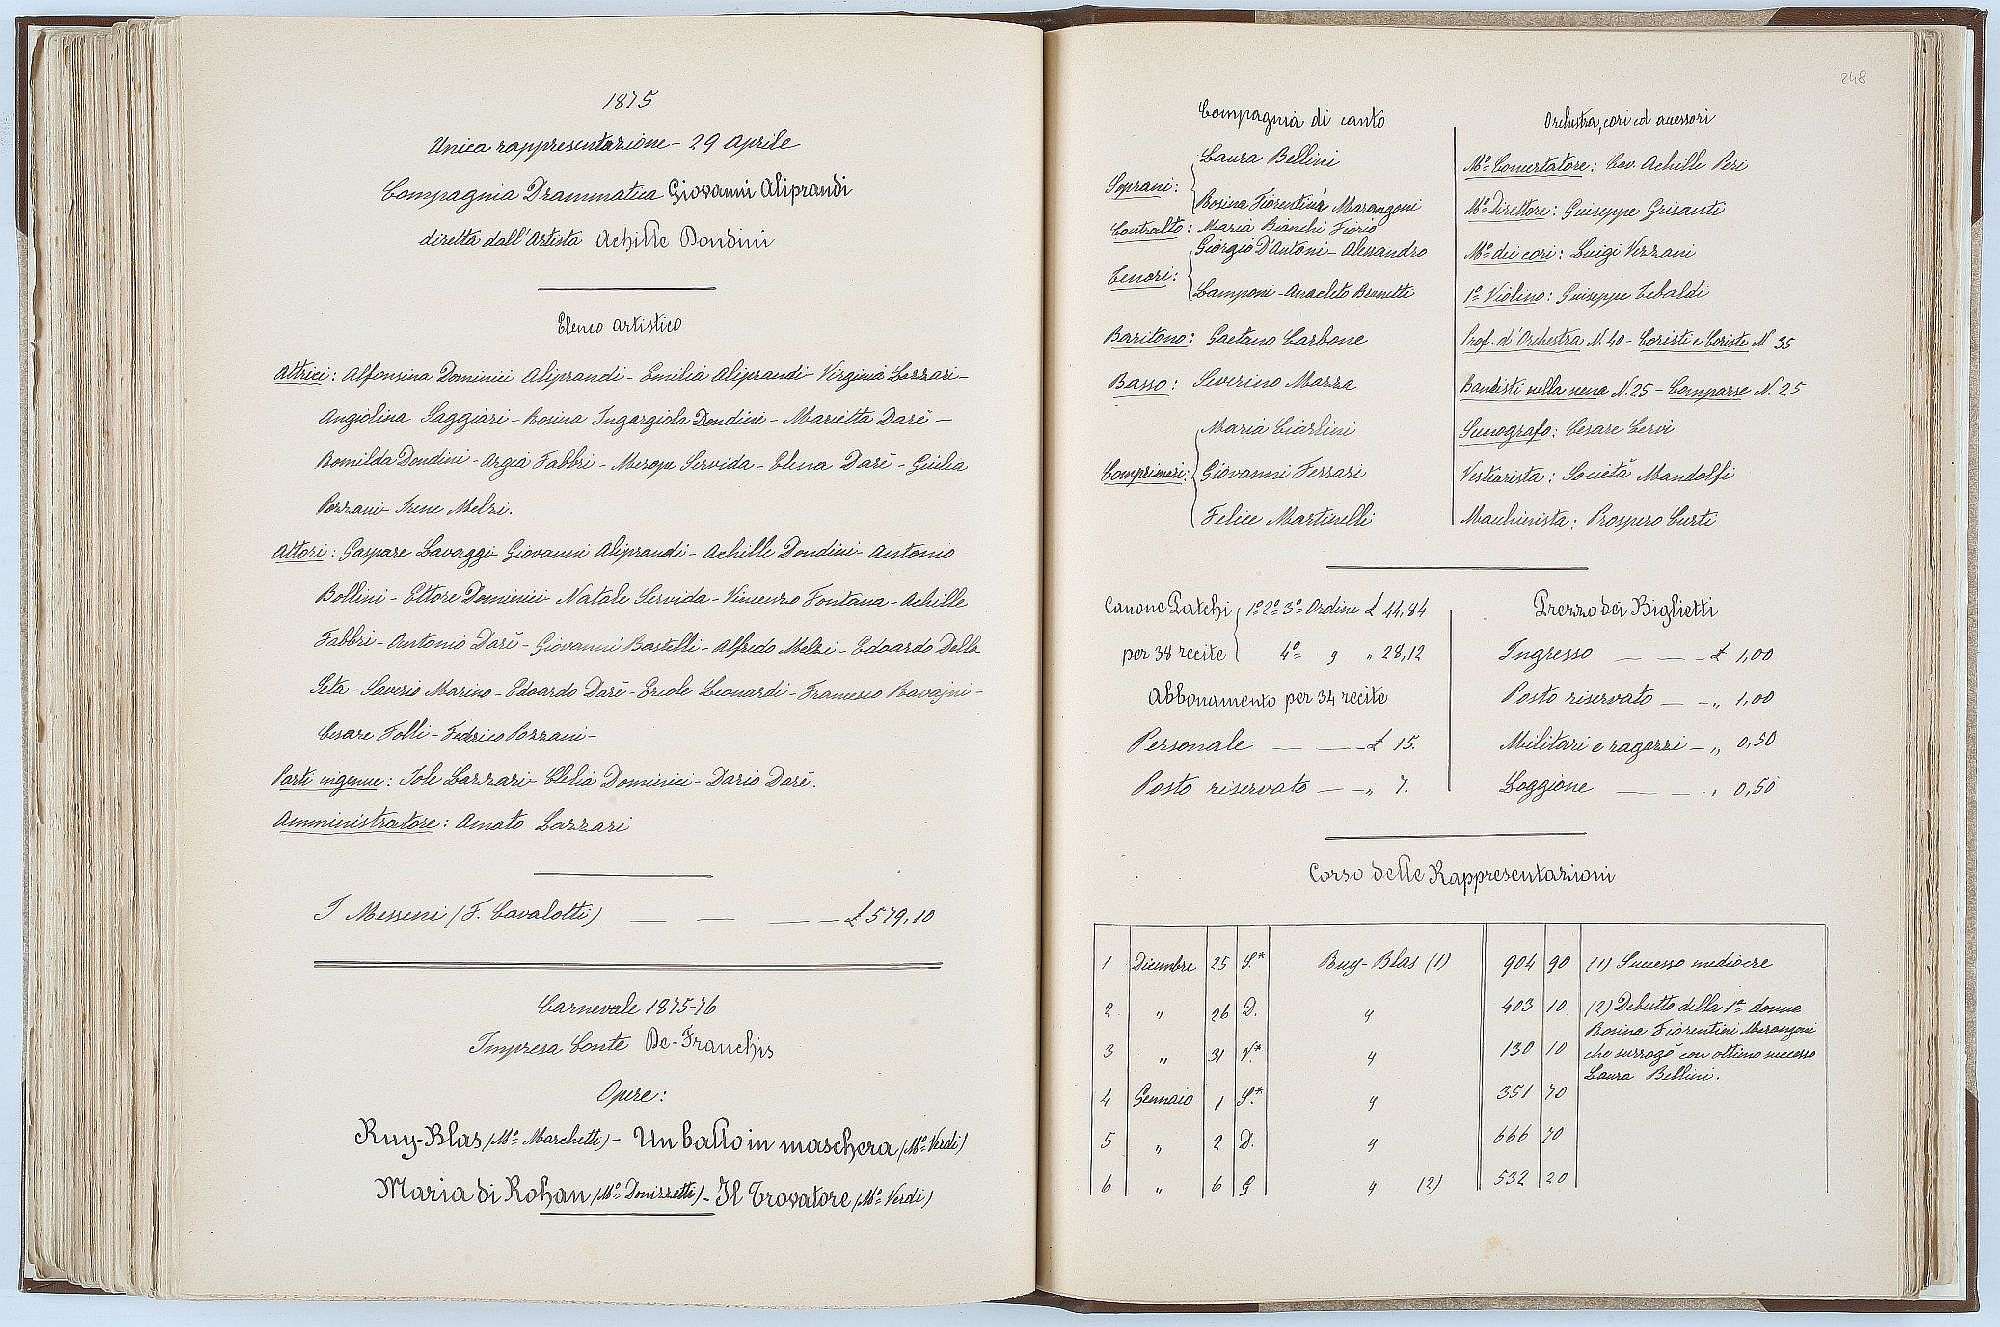 1875
Unica rappresentazione - 29 Aprile
Compagnia Drammatica Giovanni Aliprandi
diretta dall'Artista Achille Dondini
Elenco artistico
Attrici: Alfonsina Dominici Aliprandi - Emilia Aliprandi - Virginia Lazzari -
Angiolina Saggiari - Rosina Ingargiola Dondini - Marietta Darè -
Romilda Dondini - Argia Fabbri - Merope Servida - Elena Darè - Giulia
Pozzani - Irene Melzi.
Attori: Gaspare Lavaggi - Giovanni Aliprandi - Achille Dondini - Antonio
Bollini - Ettore Dominici - Natale Servida - Vincenzo Fontana - Achille
Fabbri - Antonio Darè - Giovanni Bastelli - Alfredo Melzi - Edoardo Della
Seta Saverio Marino - Edoardo Darè - Ercole Leonardi - Francesco Ravajni -
Cesare Folli - Federico Pozzani -
Parti ingenue: Iole Lazzari - Clelia Dominici - Dario Darè.
Amministratore: Amato Lazzari
I Messeni (F. Cavalotti) — — — £ 579,10
Carnevale 1875-76
Impresa Conte De-Franchis
Opere:
Ruy-Blas (Mo. Marchetti) - Un ballo in maschera (Mo. Verdi)
Maria di Rohan (Mo. Donizzetti) - Il Trovatore (Mo. Verdi)
248
Compagnia di canto
Soprani: Laura Bellini
Rosina Fiorentini Marangoni
Contralto: Maria Bianchi Fiorio
Tenori: Giorgio D'Antoni - Alessandro
Lamponi - Anacleto Brunetti
Baritono: Gaetano Carbone
Basso: Severino Mazza
Comprimari: Maria Ciarlini
Giovanni Ferrari
Felice Martinelli
Orchestra, cori ed accessori
Mo. Concertatore: Cav. Achille Peri
Mo. Direttore: Guiseppe Grisanti
Mo. dei cori: Luigi Vezzani
1o. Violino: Guiseppe Tebaldi
Prof. d'Orchestra N. 40 - Coristi e Coriste N 35
Bandisti sulla scena N. 25 - Comparse N. 25
Scenografo: Cesare Cervi
Vestiarista: Società Mandolfi
Macchinista: Prospero Curti
Canone Palchi 1o. 2o. 3o. Ordine £ 44,84
per 38 recite 4o. " " 28,12
Abbonamento per 34 recite
Personale — — £ 15.
Posto riservato — — " 7.
Prezzo dei Biglietti
Ingresso — — - £ 1,00
Posto riservato — - " 1,00
Militari e ragazzi - " 0,50
Loggione — — " 0,50
Corso delle Rappresentazioni
1 Dicembre 25 S.* Ruy-Blas (1) 904 90 (1) Successo mediocre
2 " 26 D. " 403 10 (2) Debutto della 1a. donna
Rosina Fiorentini Marangoni
3 " 31 V.* " 130 10 che surrogò con ottimo successo
Laura Bellini.
4 Gennaio 1 S.* " 351 70
5 " 2 D. " 666 70
6 " 6 G " (2) 532 20